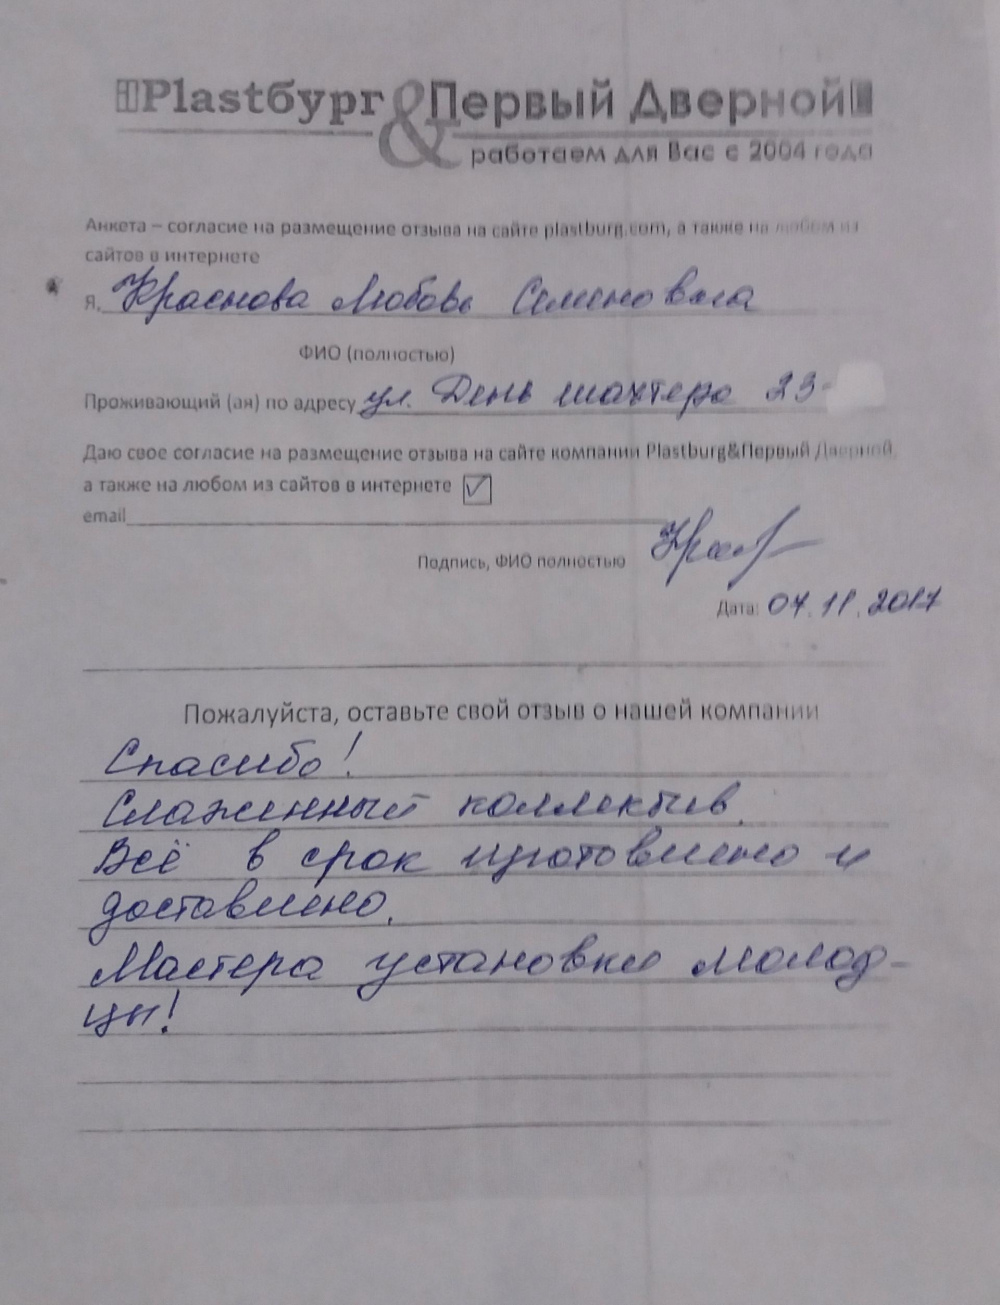 Plastбург & Первый Дверной
работаем для Вас с 2004 года
Анкета – согласие на размещение отзыва на сайте plastburg.com, а также на любом из
сайтов в интернете
Я, Краснова Любовь Семеновна
ФИО (полностью)
Проживающий (ая) по адресу ул. День шахтера 23-
Даю свое согласие на размещение отзыва на сайте компании Plastburg&Первый Дверной,
а также на любом из сайтов в интернете
email
Подпись, ФИО полностью
Дата: 07.11.2017
Пожалуйста, оставьте свой отзыв о нашей компании
Спасибо!
Слаженный коллектив.
Всё в срок изготовлено и
доставлено.
Мастера установки молод-
цы!